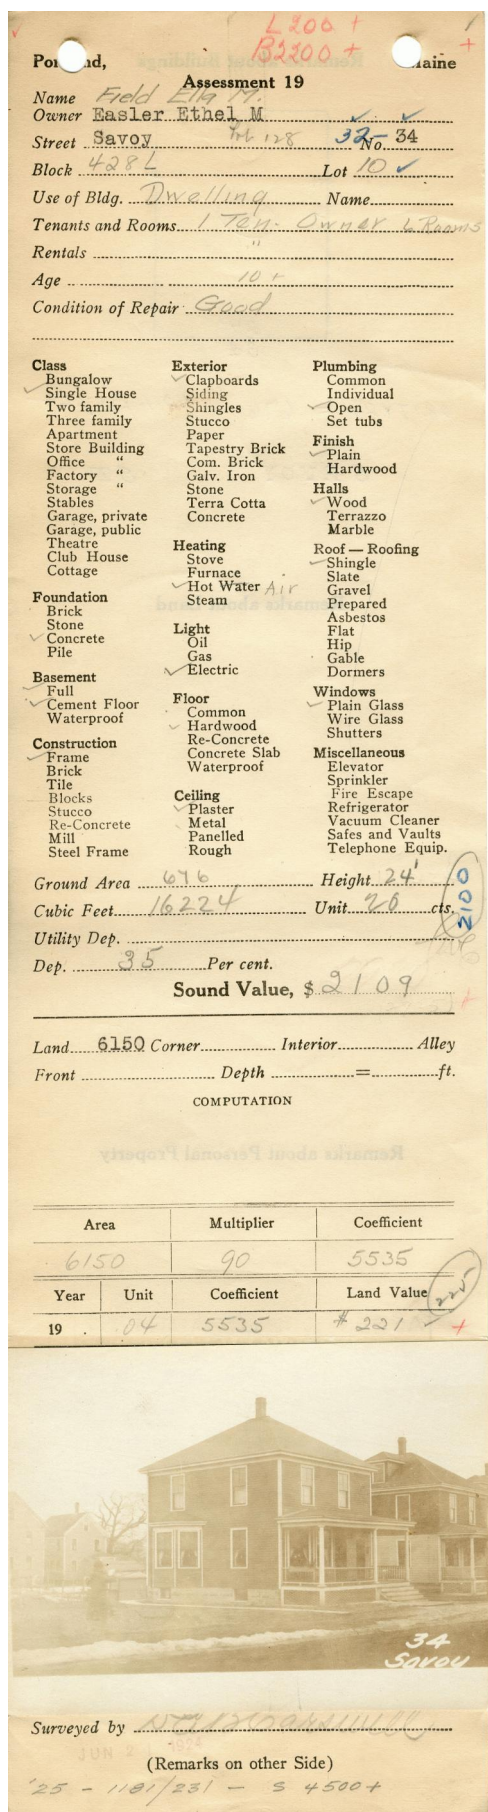 L 200 +
B 2200 +
Portland, Maine
Assessment 19
Name Field Ella M.
Owner Easler Ethel M
Street Savoy Lot 128 32- No. 34
Block 428 L Lot 10
Use of Bldg. Dwelling Name
Tenants and Rooms 1 Ten. Owner 6 Rooms
Rentals "
Age 10 +
Condition of Repair Good
Class
Bungalow
Single House
Two family
Three family
Apartment
Store Building
Office "
Factory "
Storage "
Stables
Garage, private
Garage, public
Theatre
Club House
Cottage
Foundation
Brick
Stone
Concrete
Pile
Basement
Full
Cement Floor
Waterproof
Construction
Frame
Brick
Tile
Blocks
Stucco
Re-Concrete
Mill
Steel Frame
Exterior
Clapboards
Siding
Shingles
Stucco
Paper
Tapestry Brick
Com. Brick
Galv. Iron
Stone
Terra Cotta
Concrete
Heating
Stove
Furnace
Hot Water Air
Steam
Light
Oil
Gas
Electric
Floor
Common
Hardwood
Re-Concrete
Concrete Slab
Waterproof
Ceiling
Plaster
Metal
Panelled
Rough
Plumbing
Common
Individual
Open
Set tubs
Finish
Plain
Hardwood
Halls
Wood
Terrazzo
Marble
Roof — Roofing
Shingle
Slate
Gravel
Prepared
Asbestos
Flat
Hip
Gable
Dormers
Windows
Plain Glass
Wire Glass
Shutters
Miscellaneous
Elevator
Sprinkler
Fire Escape
Refrigerator
Vacuum Cleaner
Safes and Vaults
Telephone Equip.
Ground Area 676 Height 24'
Cubic Feet 16224 Unit 20 cts.
2100
Utility Dep.
Dep. 35 Per cent.
Sound Value, $ 2109
Land 6150 Corner Interior Alley
Front Depth = ft.
COMPUTATION
Remarks about Personal Property
Area Multiplier Coefficient
6150 90 5535
Year Unit Coefficient Land Value
225
19 . 04 5535 $ 221
34
Savoy
Surveyed by
JUN 2 1924
(Remarks on other Side)
'25 - 1181/231 - S 4500+